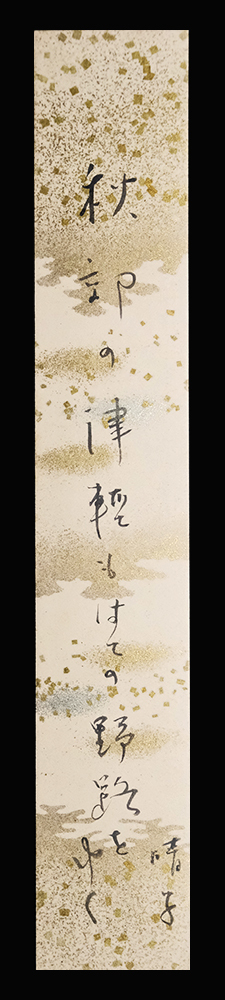 秋郊の津軽もはての野路をゆく
晴子